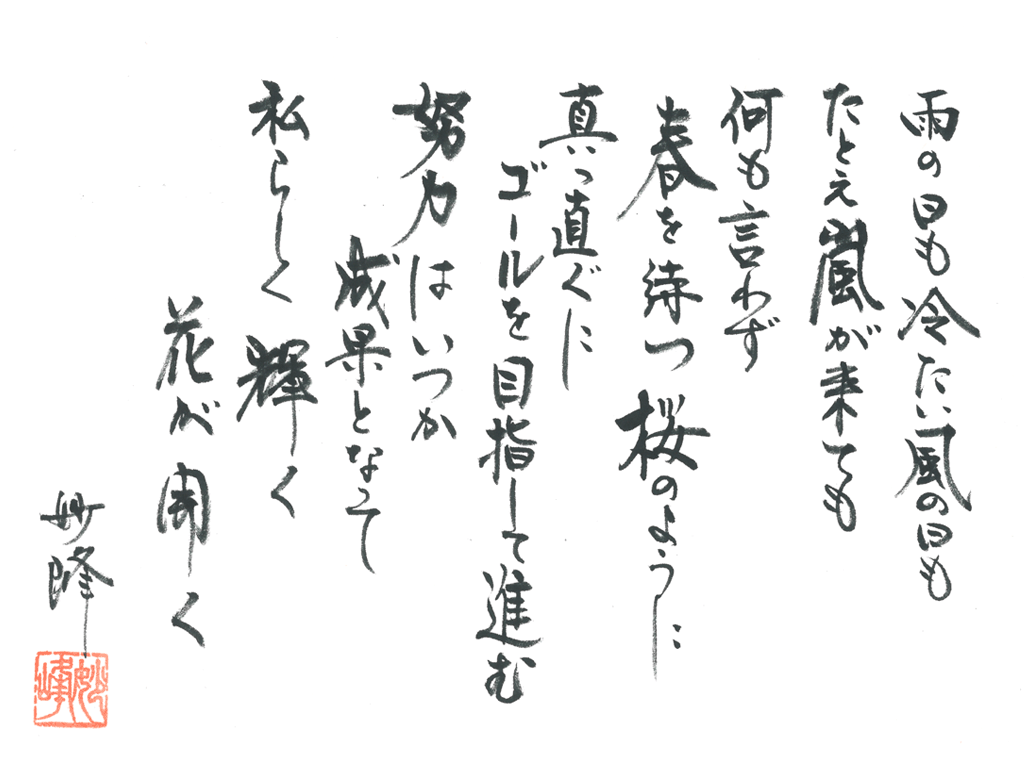 雨の日も冷たい風の日も
たとえ嵐が来ても
何も言わず
春を待つ桜のように
真っ直ぐに
ゴールを目指して進む
努力はいつか
成果となって
私らしく輝く
花が開く
妙峰
妙峰